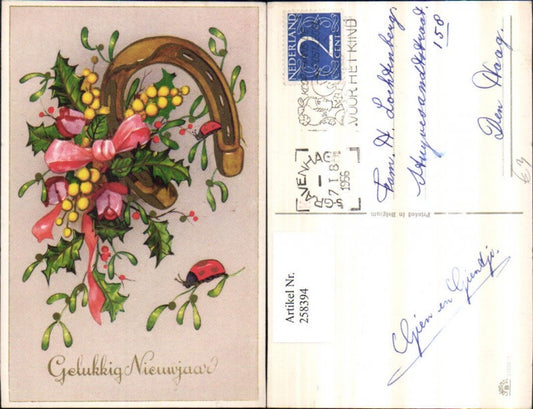 Gelukkig Nieuwjaar
NEDERLAND
2
CENT
VOOR HET KIND
'S GRAVENHAGE
1956
Fam. H. Lochtenberg.
158
Den Haag.
Printed in Belgium
Artikel Nr.
258394
Gien en Gientje.